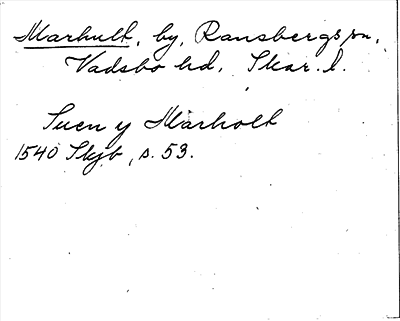 Marhult, by, Ransbergs sn,
Vadsbo hd, Skar. l.
Suen y Marholt
1540 Skjb, s. 53.